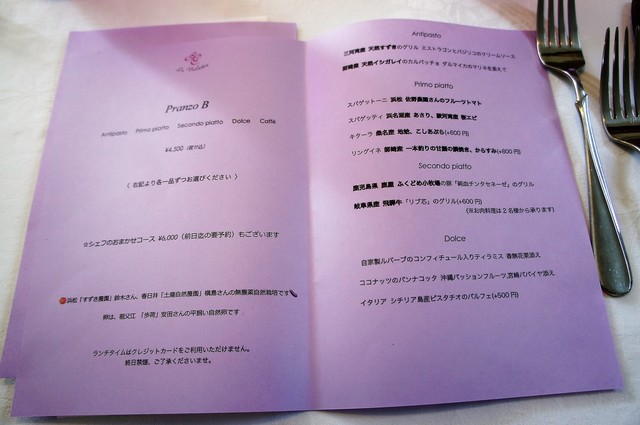 Pranzo B
Antipasto Primo piatto Secondo piatto Dolce Caffè
¥4,500 (税サ込)
〈 右記より各一品ずつお選びください 〉
☆シェフのおまかせコース ¥6,000(前日迄の要予約)もございます
浜松「すずき農園」鈴木さん、春日井「土産自然農園」横島さんの無農薬自然栽培です
卵は、祖父江「歩荷」安田さんの平飼い自然卵です
ランチタイムはクレジットカードをご利用いただけません。
終日禁煙、ご了承くださいませ。
Antipasto
三河湾産 天然すずきのグリル ミストラゴンとバジリコのクリームソース
師崎産 天然イシガレイのカルパッチョ ダルマイカのマリネを添えて
Primo piatto
スパゲットーニ 浜松 佐野農園さんのフルーツトマト
スパゲッティ 浜名湖産 あさり、駿河湾産 桜エビ
キターラ 桑名産 地蛤、こしあぶら(+600円)
リングイネ 師崎産 一本釣りの甘鯛の鱗焼き、からすみ(+800円)
Secondo piatto
鹿児島県 鹿屋 ふくどめ小牧場の豚「純血チンタセネーゼ」のグリル
岐阜県産 飛騨牛「リブ芯」のグリル(+600円)
(※お肉料理は2名様から承ります)
Dolce
自家製ルバーブのコンフィチュール入りティラミス 香無花菓添え
ココナッツのパンナコッタ 沖縄パッションフルーツ,宮崎パパイヤ添え
イタリア シチリア島産ピスタチオのパルフェ(+500円)